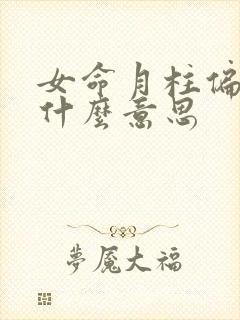 女命月柱偏
什麼意思
夢魘大福